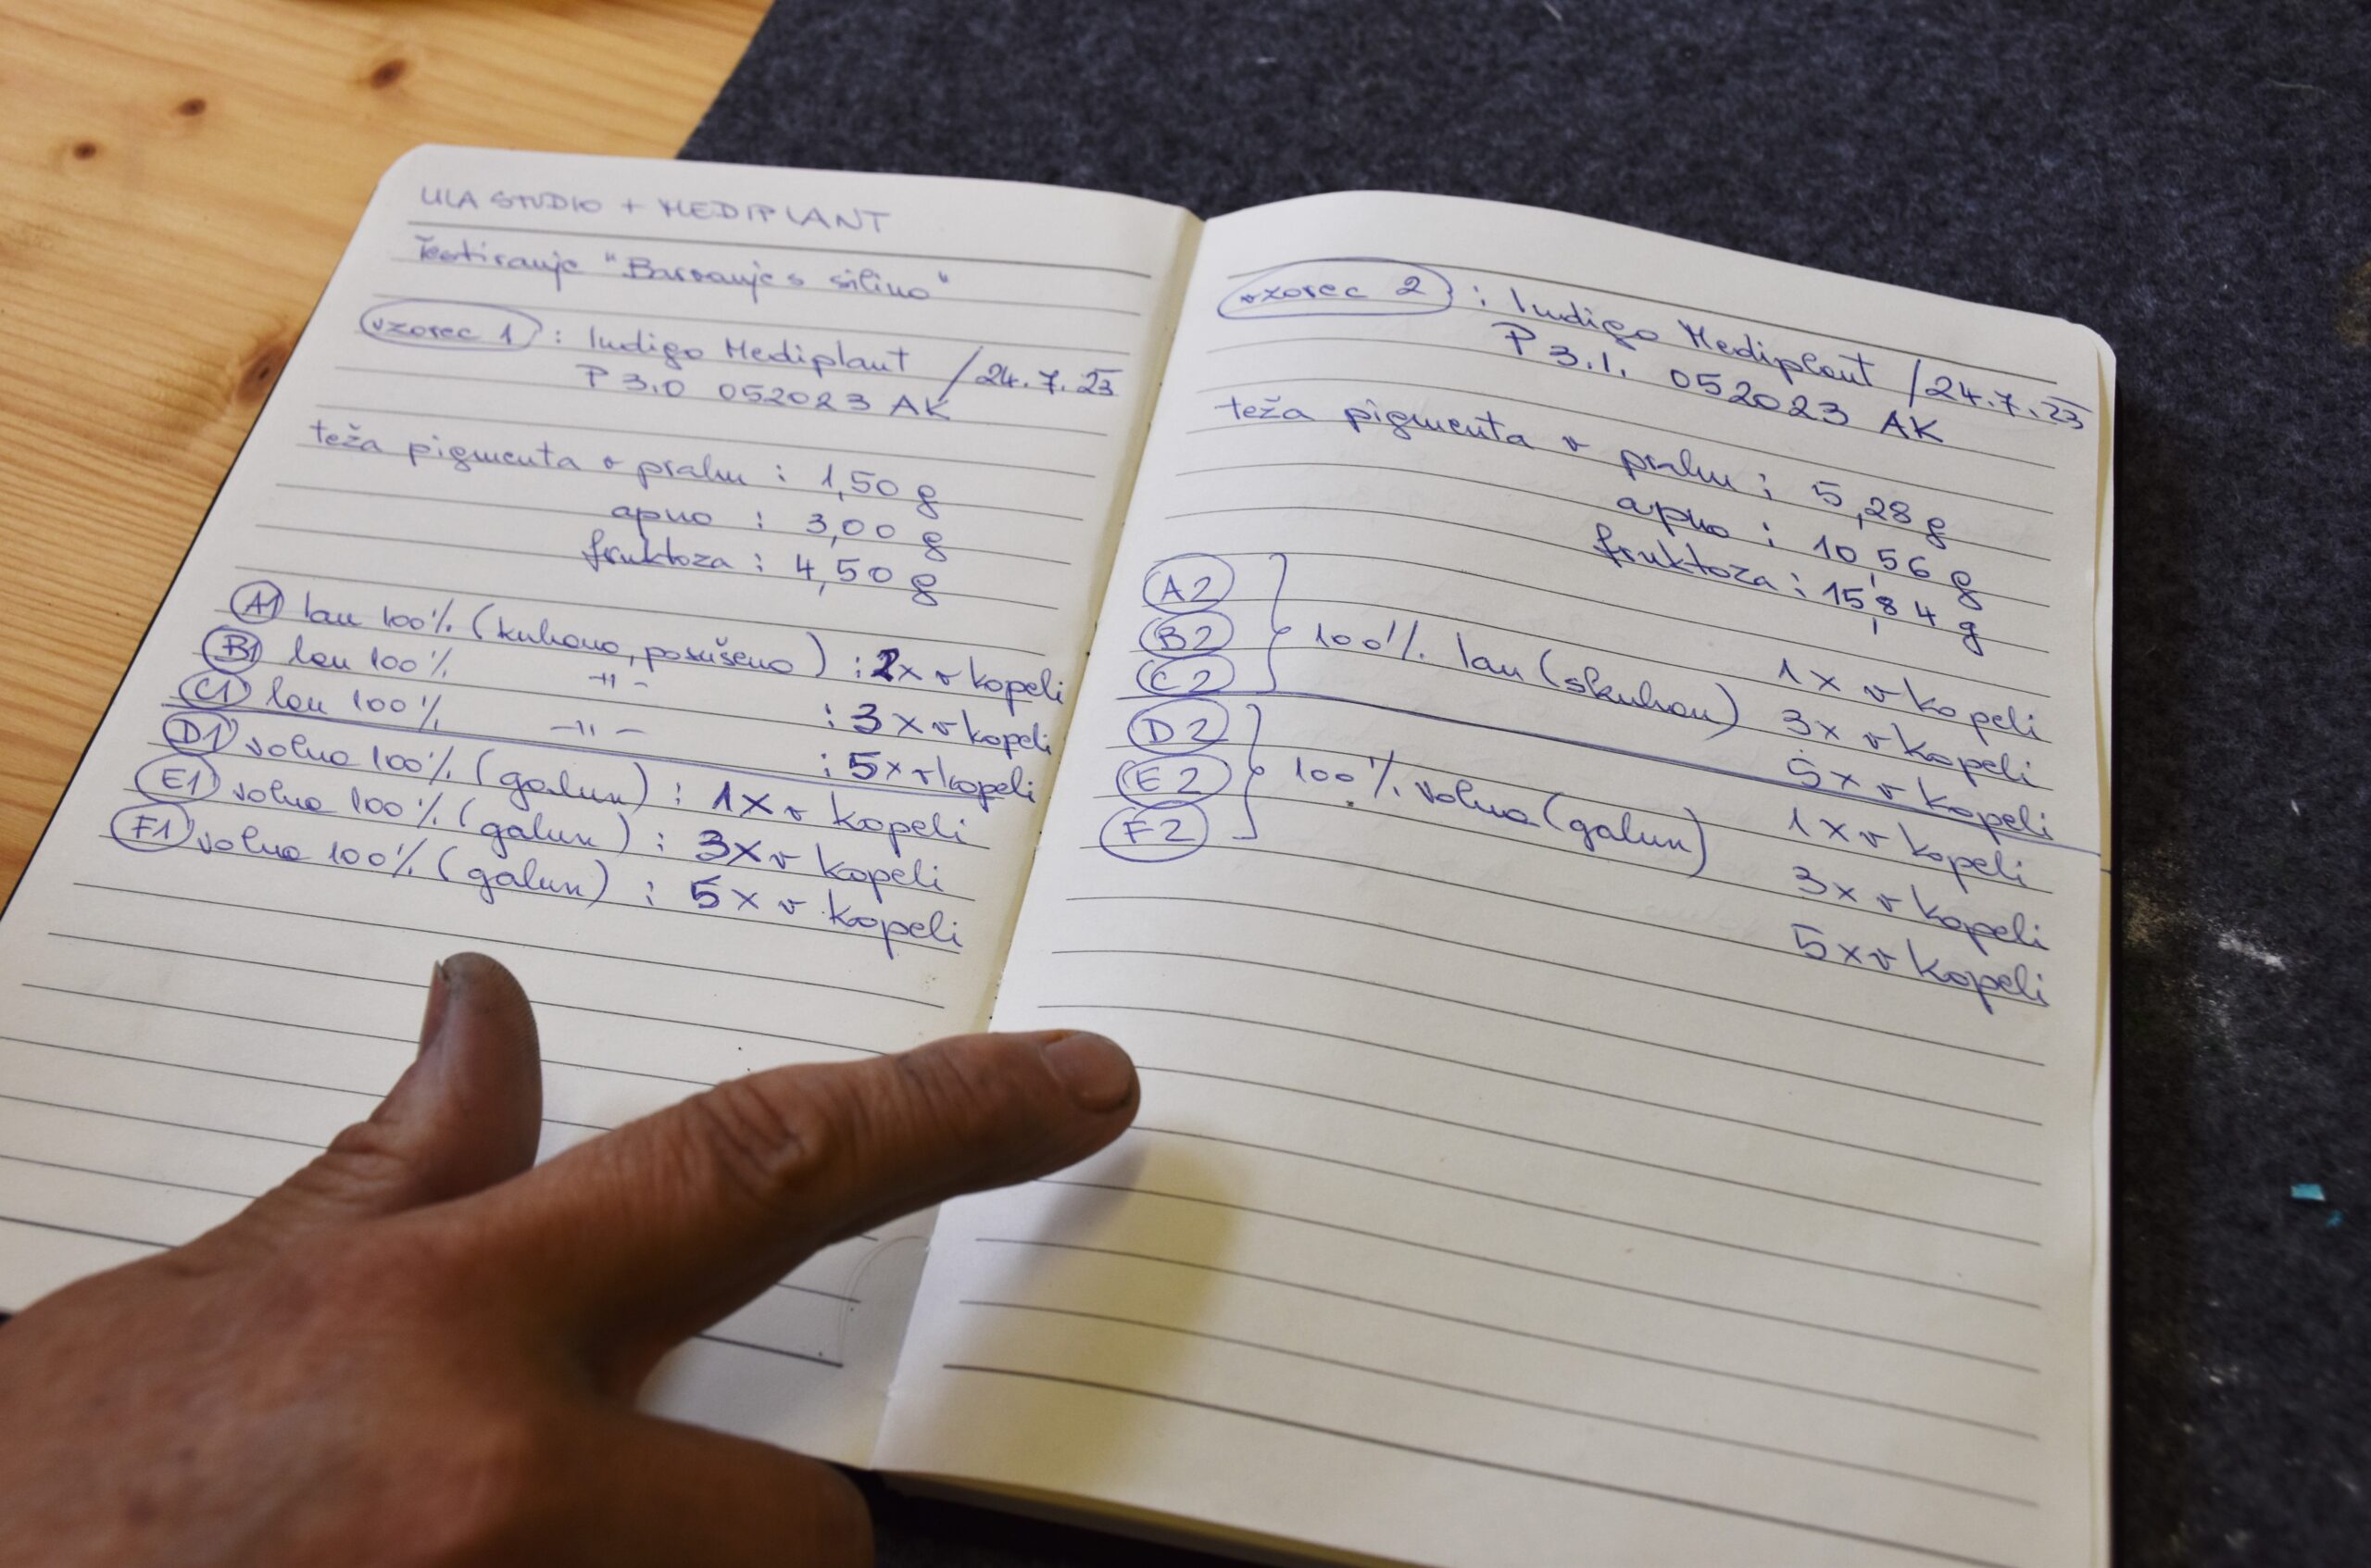 ULA STUDIO + MEDIPLANT
Testiranje "Barvanje s silino"
vzorec 1 : Indigo Mediplant / 24.7.23
P 3.0 052023 AK
teža pigmenta v prahu : 1,50 g
apno : 3,00 g
fruktoza : 4,50 g
A1 lan 100% (kuhano, posušeno) : 2x v kopeli
B1 lan 100% -11- : 3x v kopeli
C1 lan 100% -11- : 5x v kopeli
D1 volna 100% (galun) : 1x v kopeli
E1 volna 100% (galun) : 3x v kopeli
F1 volna 100% (galun) : 5x v kopeli
vzorec 2 : Indigo Mediplant / 24.7.23
P 3.1. 052023 AK
teža pigmenta v prahu : 5,28 g
apno : 10,56 g
fruktoza : 15,84 g
A2 1x v kopeli
B2 100% lan (skuhan) 3x v kopeli
C2 5x v kopeli
D2 1x v kopeli
E2 100% volna (galun) 3x v kopeli
F2 5x v kopeli